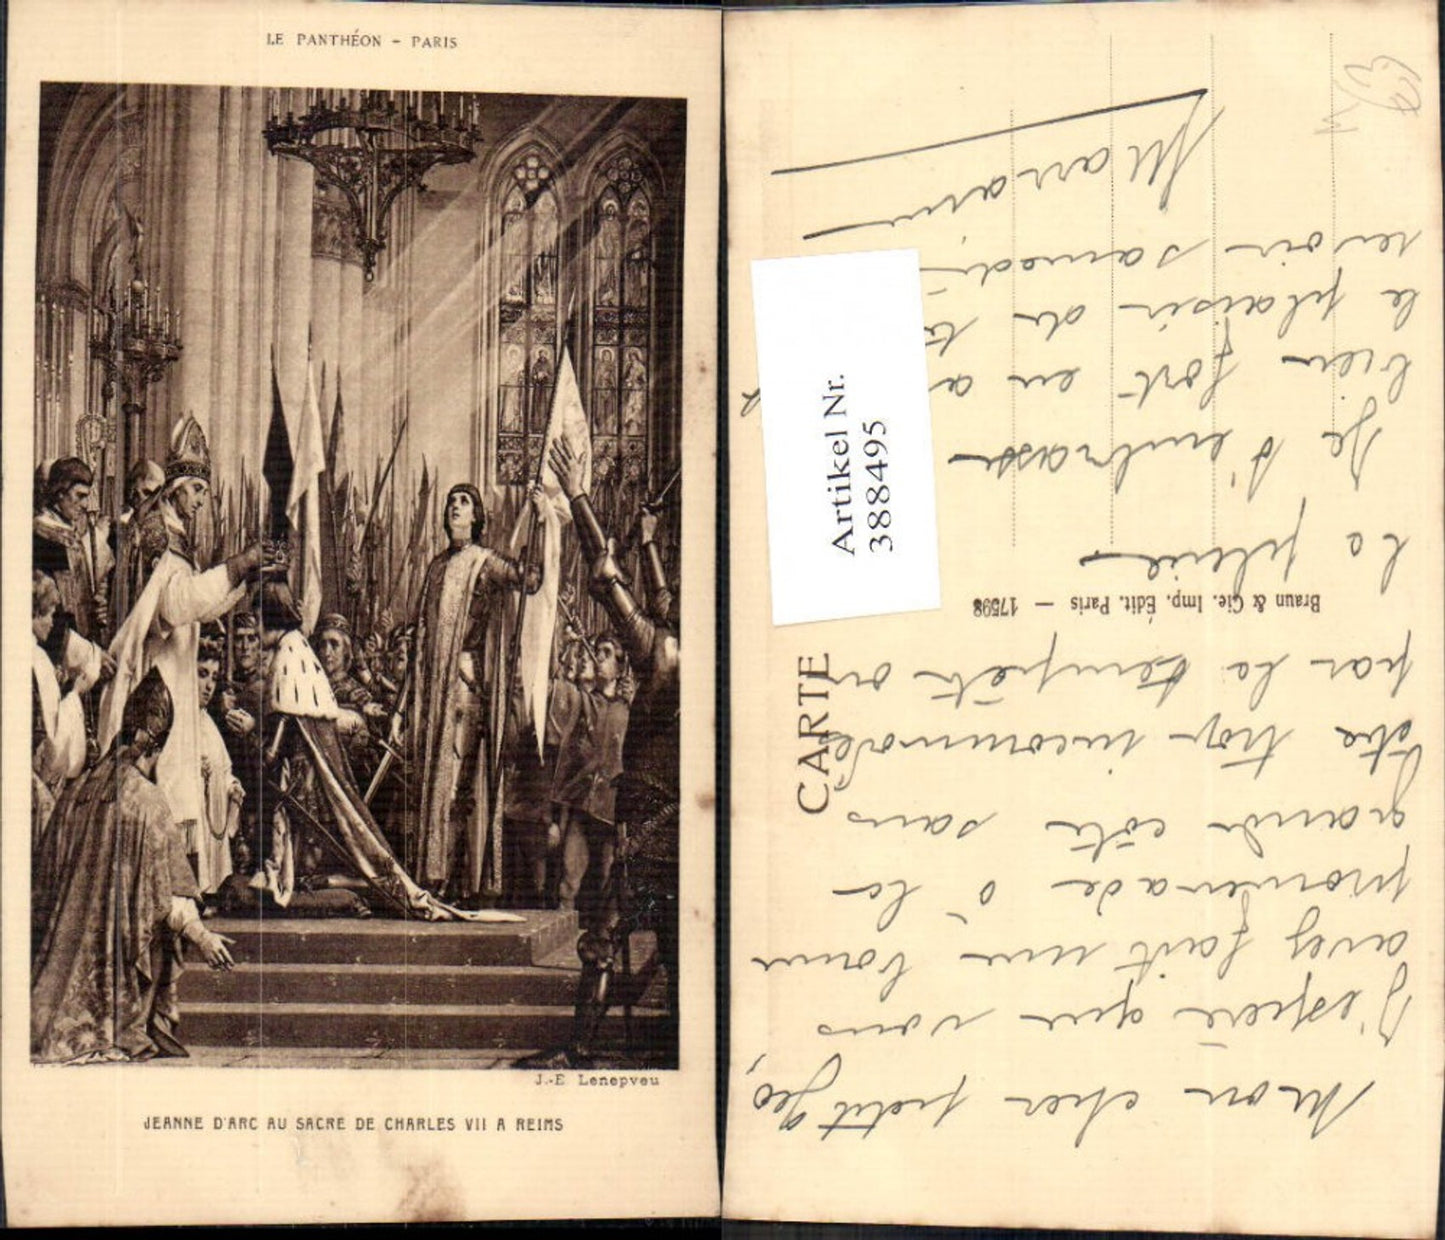 LE PANTHÉON - PARIS
J.-E Lenepveu
JEANNE D'ARC AU SACRE DE CHARLES VII A REIMS
Mon cher petit Géo,
J'espère que vous
avez fait une bonne
promenade à la
grande côte sans
être trop incommodés
par la tempête ou
la pluie
Je t'embrasse
bien fort en a
le plaisir de t
revoir samedi,
CARTE
Braun & Cie. Imp. Édit. Paris — 17598
Artikel Nr.
388495